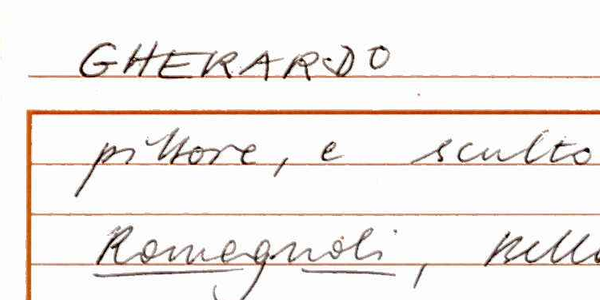 GHERARDO
pittore, e sculto
Romagnoli, Bell